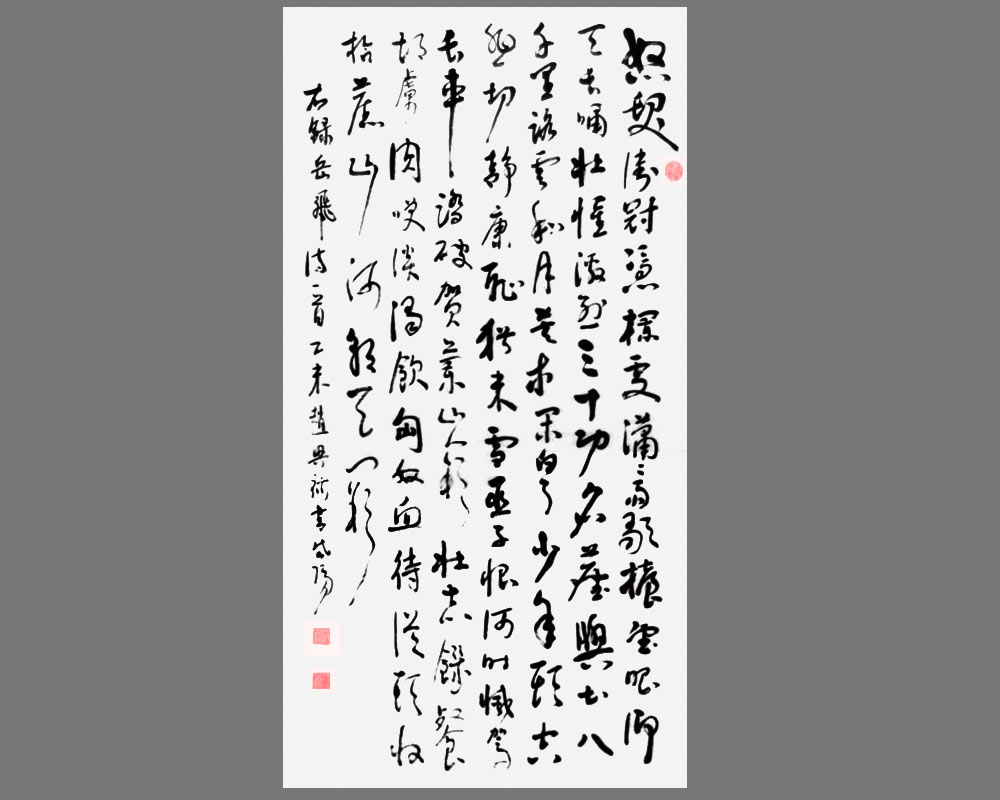 怒髮衝冠憑欄處瀟瀟雨歇擡望眼仰
天長嘯壯懷激烈三十功名塵與土八
千里路雲和月莫等閑白了少年頭空
悲切靜康恥猶未雪臣子恨何时滅駕
長車踏破賀蘭山缺壯志饑餐
胡虜肉笑談渴飲匈奴血待從頭收
拾舊山河朝天闕
右録岳飛詩一首乙未趙興書